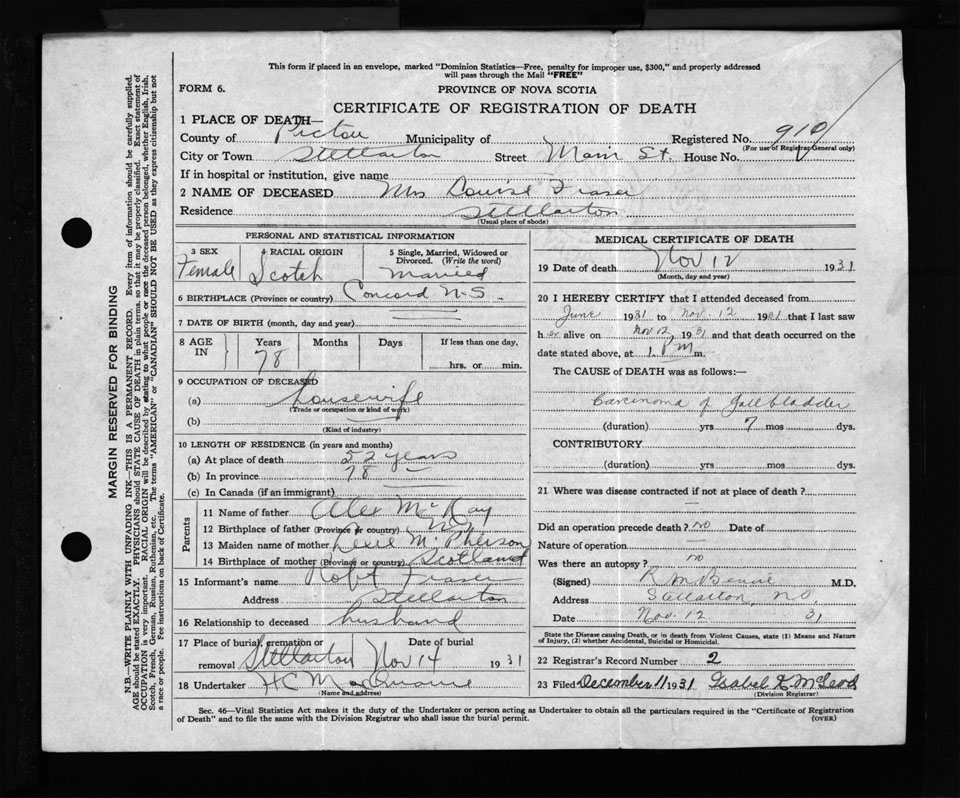 This form if placed in an envelope, marked "Dominion Statistics—Free, penalty for improper use, $300," and properly addressed
will pass through the Mail "FREE"
FORM 6. PROVINCE OF NOVA SCOTIA
CERTIFICATE OF REGISTRATION OF DEATH
1 PLACE OF DEATH—
County of Pictou Municipality of Registered No. 910
(For use of Registrar General only)
City or Town Stellarton Street Main St. House No.
If in hospital or institution, give name
2 NAME OF DECEASED Mrs Louise Fraser
Residence Stellarton
(Usual place of abode)
PERSONAL AND STATISTICAL INFORMATION
3 SEX 4 RACIAL ORIGIN 5 Single, Married, Widowed or
Divorced. (Write the word)
Female Scotch Married
6 BIRTHPLACE (Province or country) Concord N.S.
7 DATE OF BIRTH (month, day and year)
8 AGE IN Years Months Days If less than one day,
78 hrs. or min.
9 OCCUPATION OF DECEASED
(a) Housewife
(Trade or occupation or kind of work)
(b)
(Kind of industry)
10 LENGTH OF RESIDENCE (in years and months)
(a) At place of death 52 years
(b) In province 78
(c) In Canada (if an immigrant)
Parents
11 Name of father Alex McKay
12 Birthplace of father (Province or country) N.S.
13 Maiden name of mother McPherson
14 Birthplace of mother (Province or country) Scotland
15 Informant's name Robt Fraser
Address Stellarton
16 Relationship to deceased husband
17 Place of burial, cremation or Date of burial
removal Stellarton Nov 14 1931
18 Undertaker H C
(Name and address)
MEDICAL CERTIFICATE OF DEATH
19 Date of death Nov 12 1931
(Month, day and year)
20 I HEREBY CERTIFY that I attended deceased from
June 1931 to Nov. 12 1931 that I last saw
h er alive on Nov 12 1931 and that death occurred on the
date stated above, at 1. P M m.
The CAUSE of DEATH was as follows:—
Carcinoma of Gallbladder
(duration) yrs 7 mos dys.
CONTRIBUTORY
(duration) yrs mos dys.
21 Where was disease contracted if not at place of death?
Did an operation precede death? no Date of
Nature of operation —
Was there an autopsy? no
(Signed) M.D.
Address Stellarton, N.S.
Date Nov. 12 31
State the Disease causing Death, or in death from Violent Causes, state (1) Means and Nature
of Injury, (2) whether Accidental, Suicidal or Homicidal.
22 Registrar's Record Number 2
23 Filed December 11 1931 Isabel K. McLeod
(Division Registrar)
Sec. 46—Vital Statistics Act makes it the duty of the Undertaker or person acting as Undertaker to obtain all the particulars required in the "Certificate of Registration
of Death" and to file the same with the Division Registrar who shall issue the burial permit. (OVER)
MARGIN RESERVED FOR BINDING
N.B.—WRITE PLAINLY WITH UNFADING INK—THIS IS A PERMANENT RECORD. Every item of information should be carefully supplied.
AGE should be stated EXACTLY. PHYSICIANS should STATE CAUSE OF DEATH in plain terms, so that it may be properly classified. Exact statement of
OCCUPATION is very important. RACIAL ORIGIN will be described by stating to what people or race the deceased person belonged, whether English, Irish,
Scotch, French, German, Russian, Ruthenian, etc. The terms "AMERICAN" or "CANADIAN" SHOULD NOT BE USED as they express citizenship but not
a race or people. Fee instructions on back of Certificate.